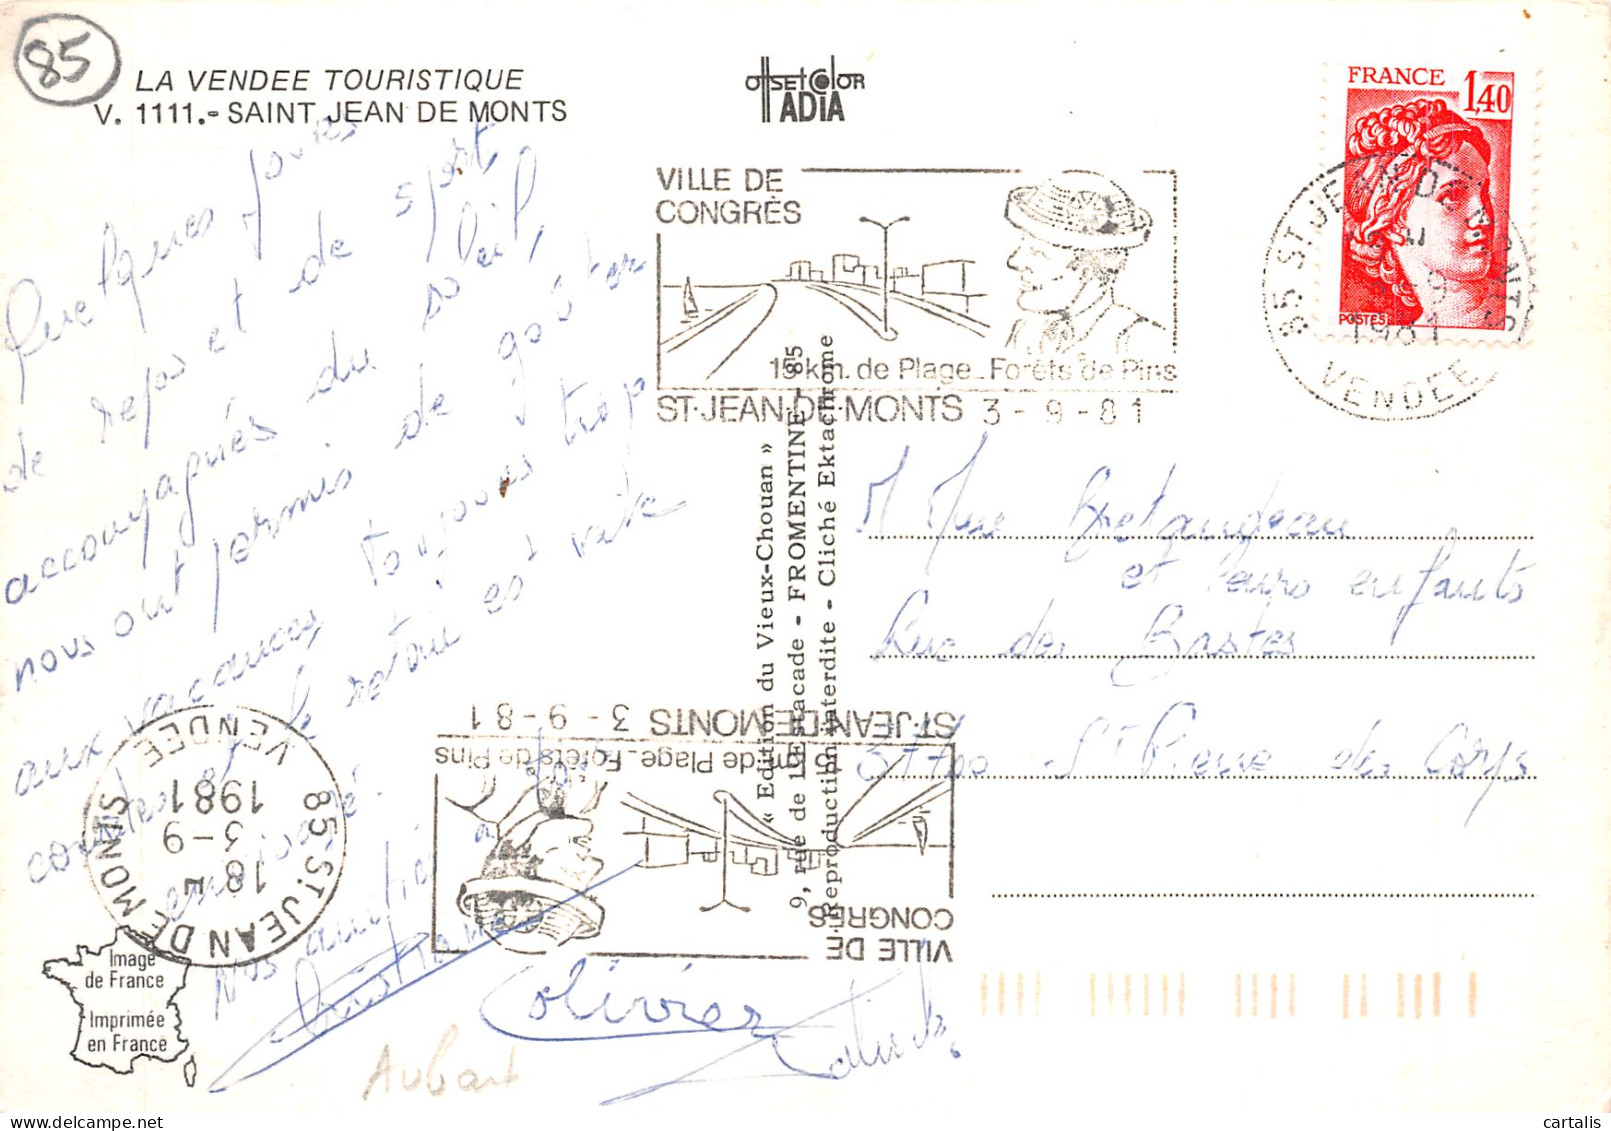 85
LA VENDEE TOURISTIQUE
V. 1111.- SAINT JEAN DE MONTS
offset color
ADIA
FRANCE 1,40
POSTES
VILLE DE
CONGRÈS
15 km. de Plage - Forêts de Pins
ST-JEAN-DE-MONTS 3-9-81
85 ST JEAN DE MONTS
1981
VENDEE
Quelques jours
de repos et de sport
accompagnés du soleil,
nous ont permis de goûter
aux vacances, toujours trop
courtes et le retour est vite
Nos amitiés à
Christiane
Olivier
Aubart
M Mme Bretaudeau
et leurs enfants
Rue des Bastes
37700 St Pierre des Corps
« Edition du Vieux-Chouan »
9, rue de L'Estacade - FROMENTINE - 85
Reproduction interdite - Cliché Ektachrome
VILLE DE
CONGRÈS
km. de Plage - Forêts de Pins
ST-JEAN-DE-MONTS 3-9-81
85 ST.JEAN DE MONTS
18 H
3-9
1981
VENDEE
Image
de France
Imprimée
en France
cartalis
www.delcampe.net